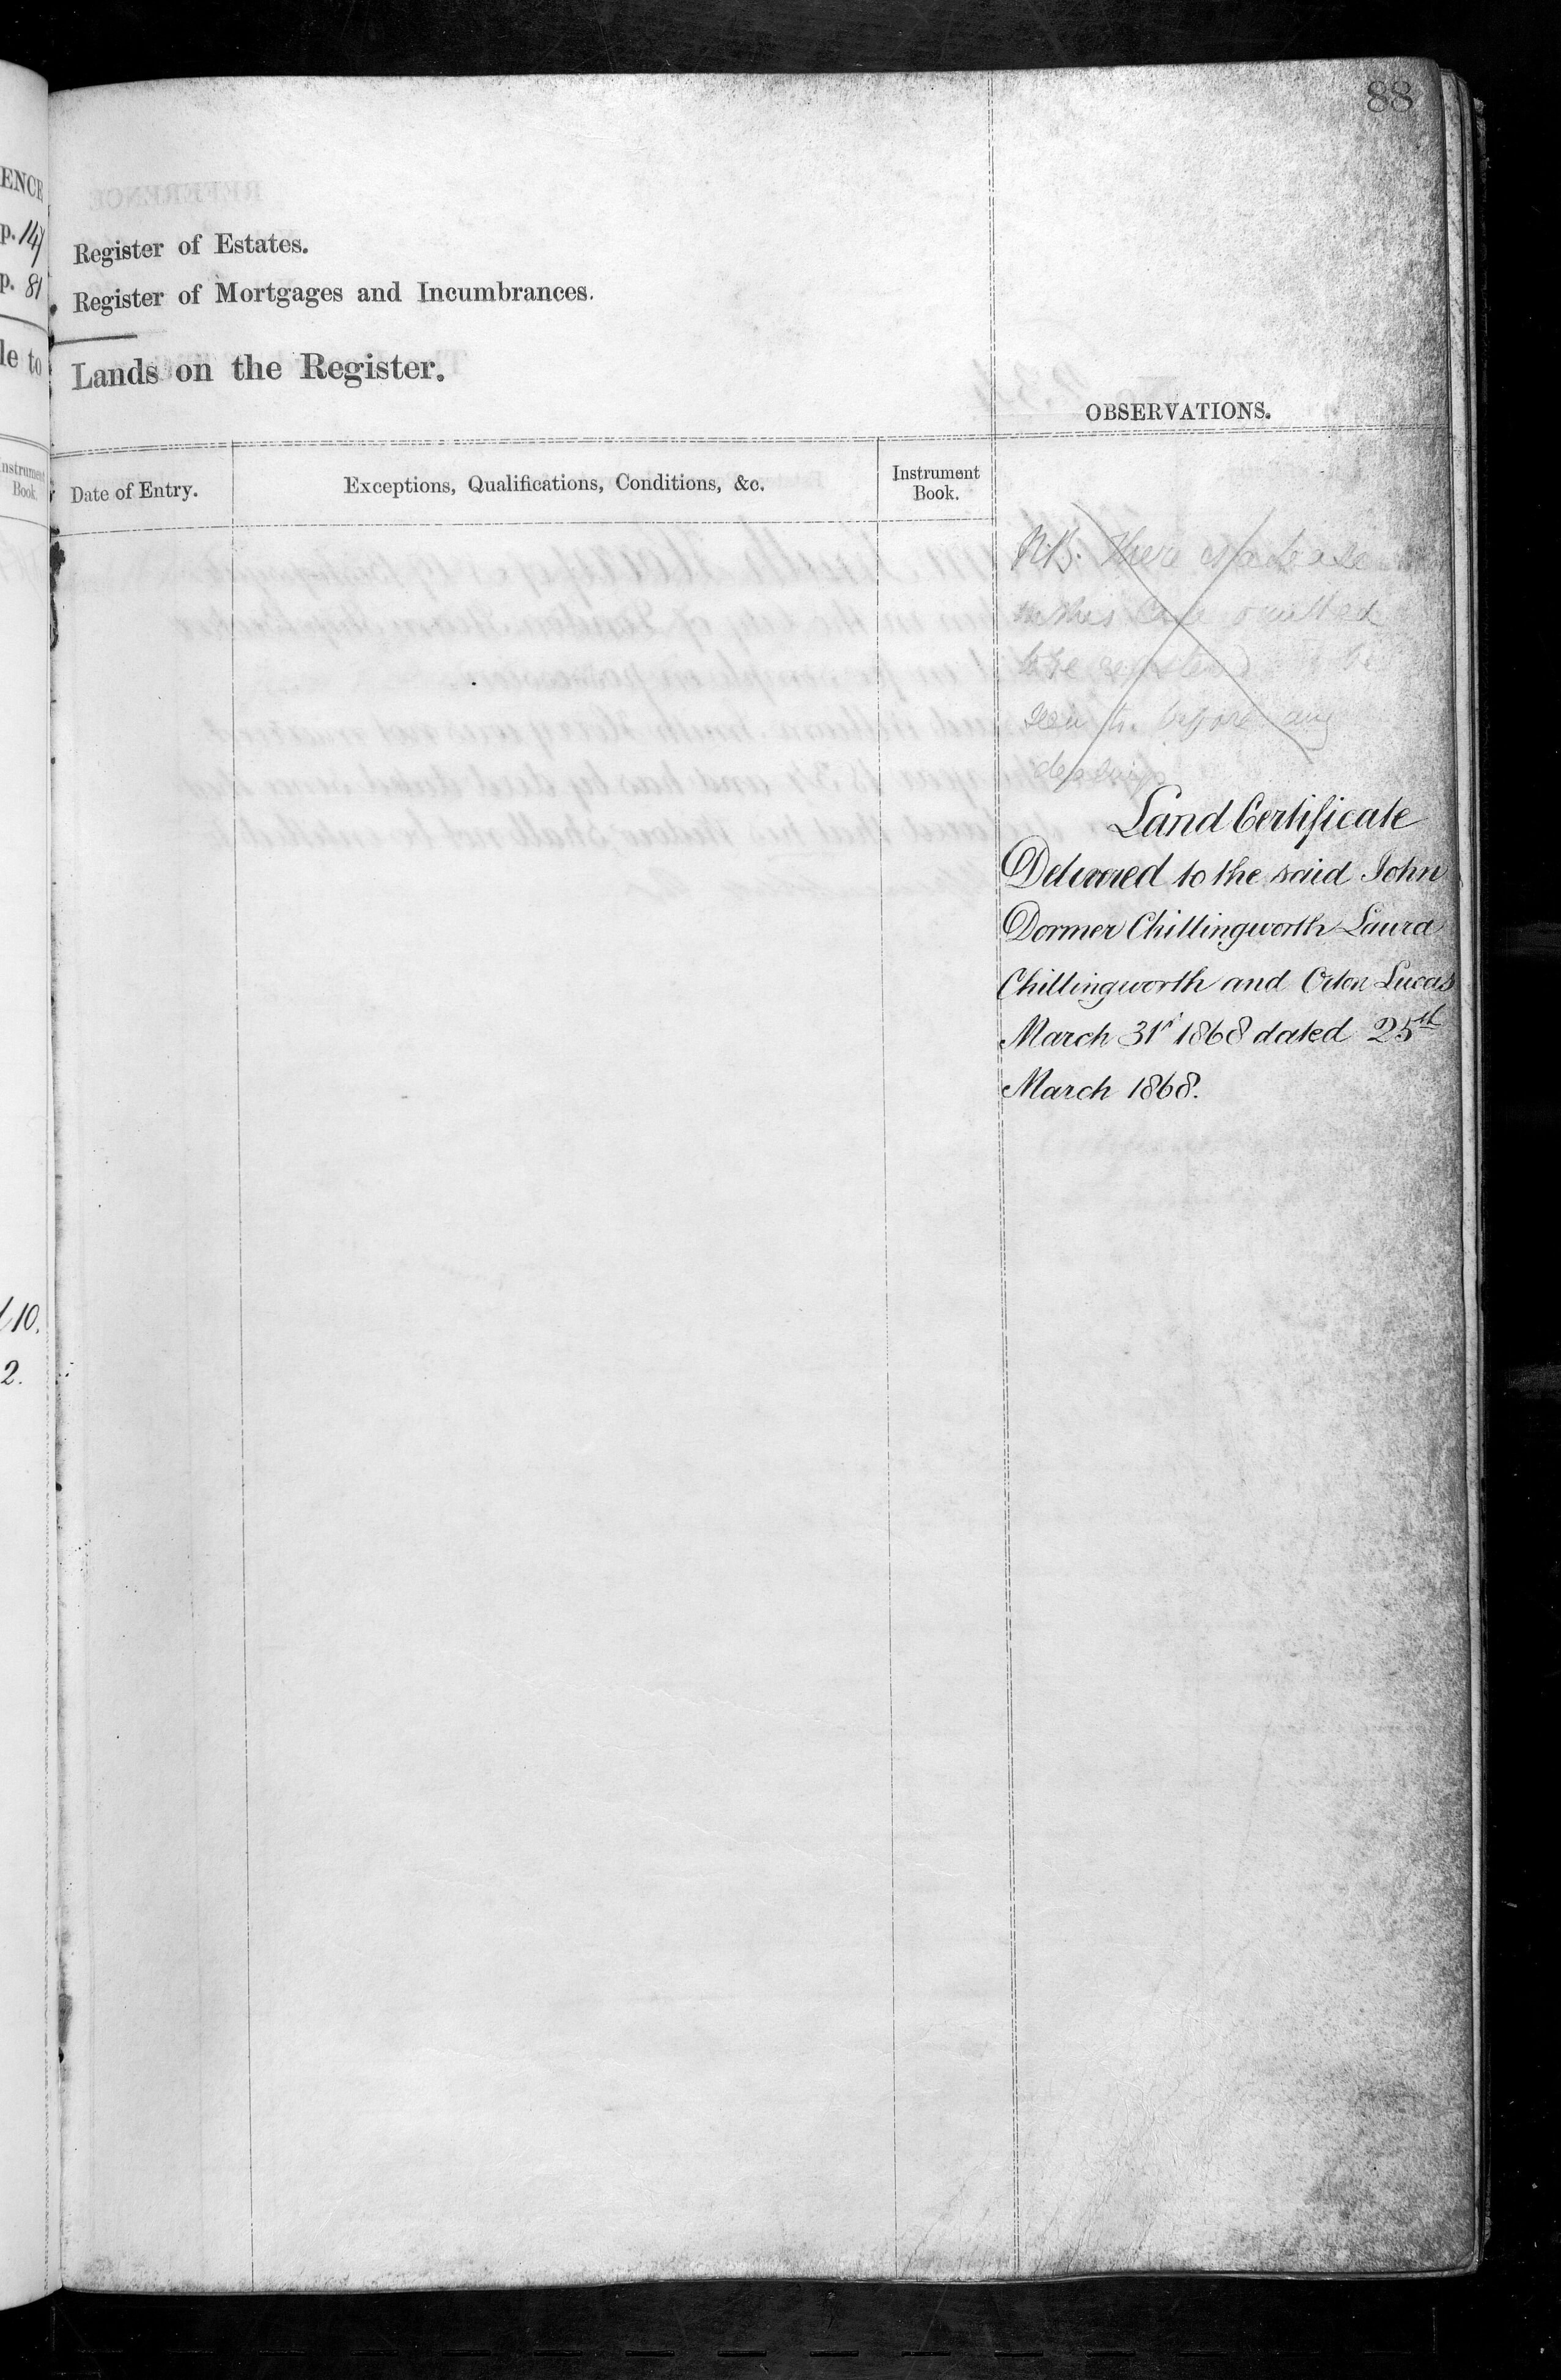 88
ENCE
p. 147
p. 81
le to
Instrument
Book.
110.
2.
Register of Estates.
Register of Mortgages and Incumbrances.
Lands on the Register.
OBSERVATIONS.
Date of Entry.
Exceptions, Qualifications, Conditions, &c.
Instrument
Book.
N.B. There is a Lease
in this Case omitted
to be registered
before any
dealings
Land Certificate
Delivered to the said John
Dormer Chillingworth Laura
Chillingworth and Orton Lucas
March 31st 1868 dated 25th
March 1868.